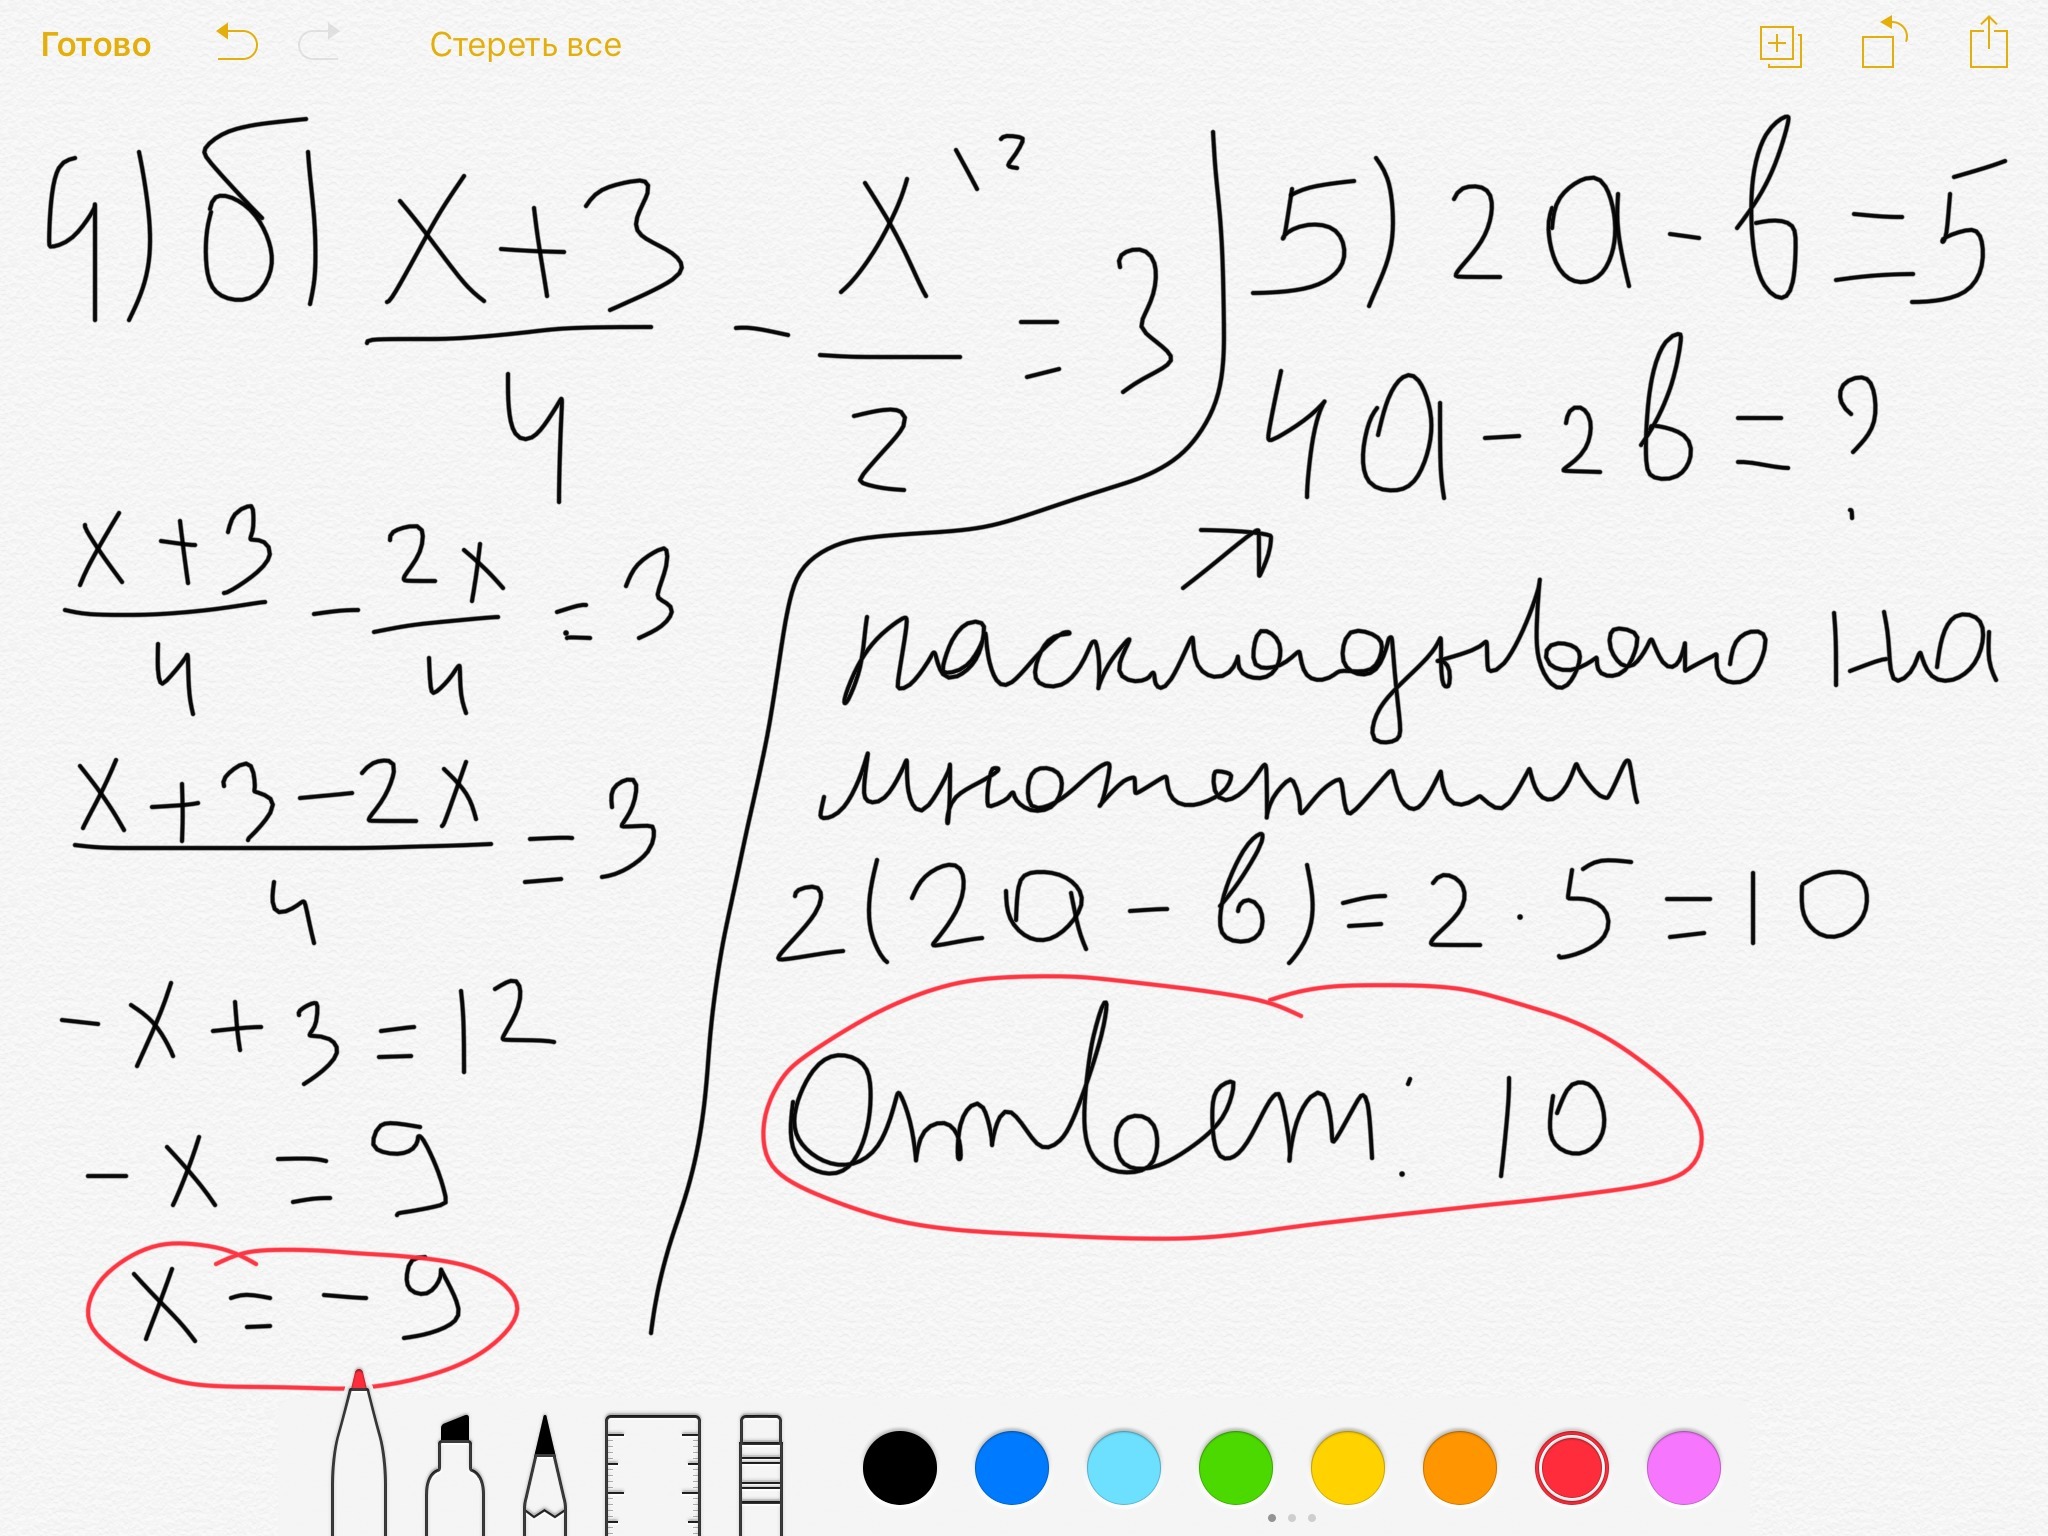 Готово Стереть все
4) б) (x+3)/4 - x/2 \2 = 3
(x+3)/4 - 2x/4 = 3
(x+3-2x)/4 = 3
-x+3=12
-x=9
x=-9
5) 2а-в=5
4а-2в=?
раскладываю на
множетили
2(2а-в)=2·5=10
Ответ: 10